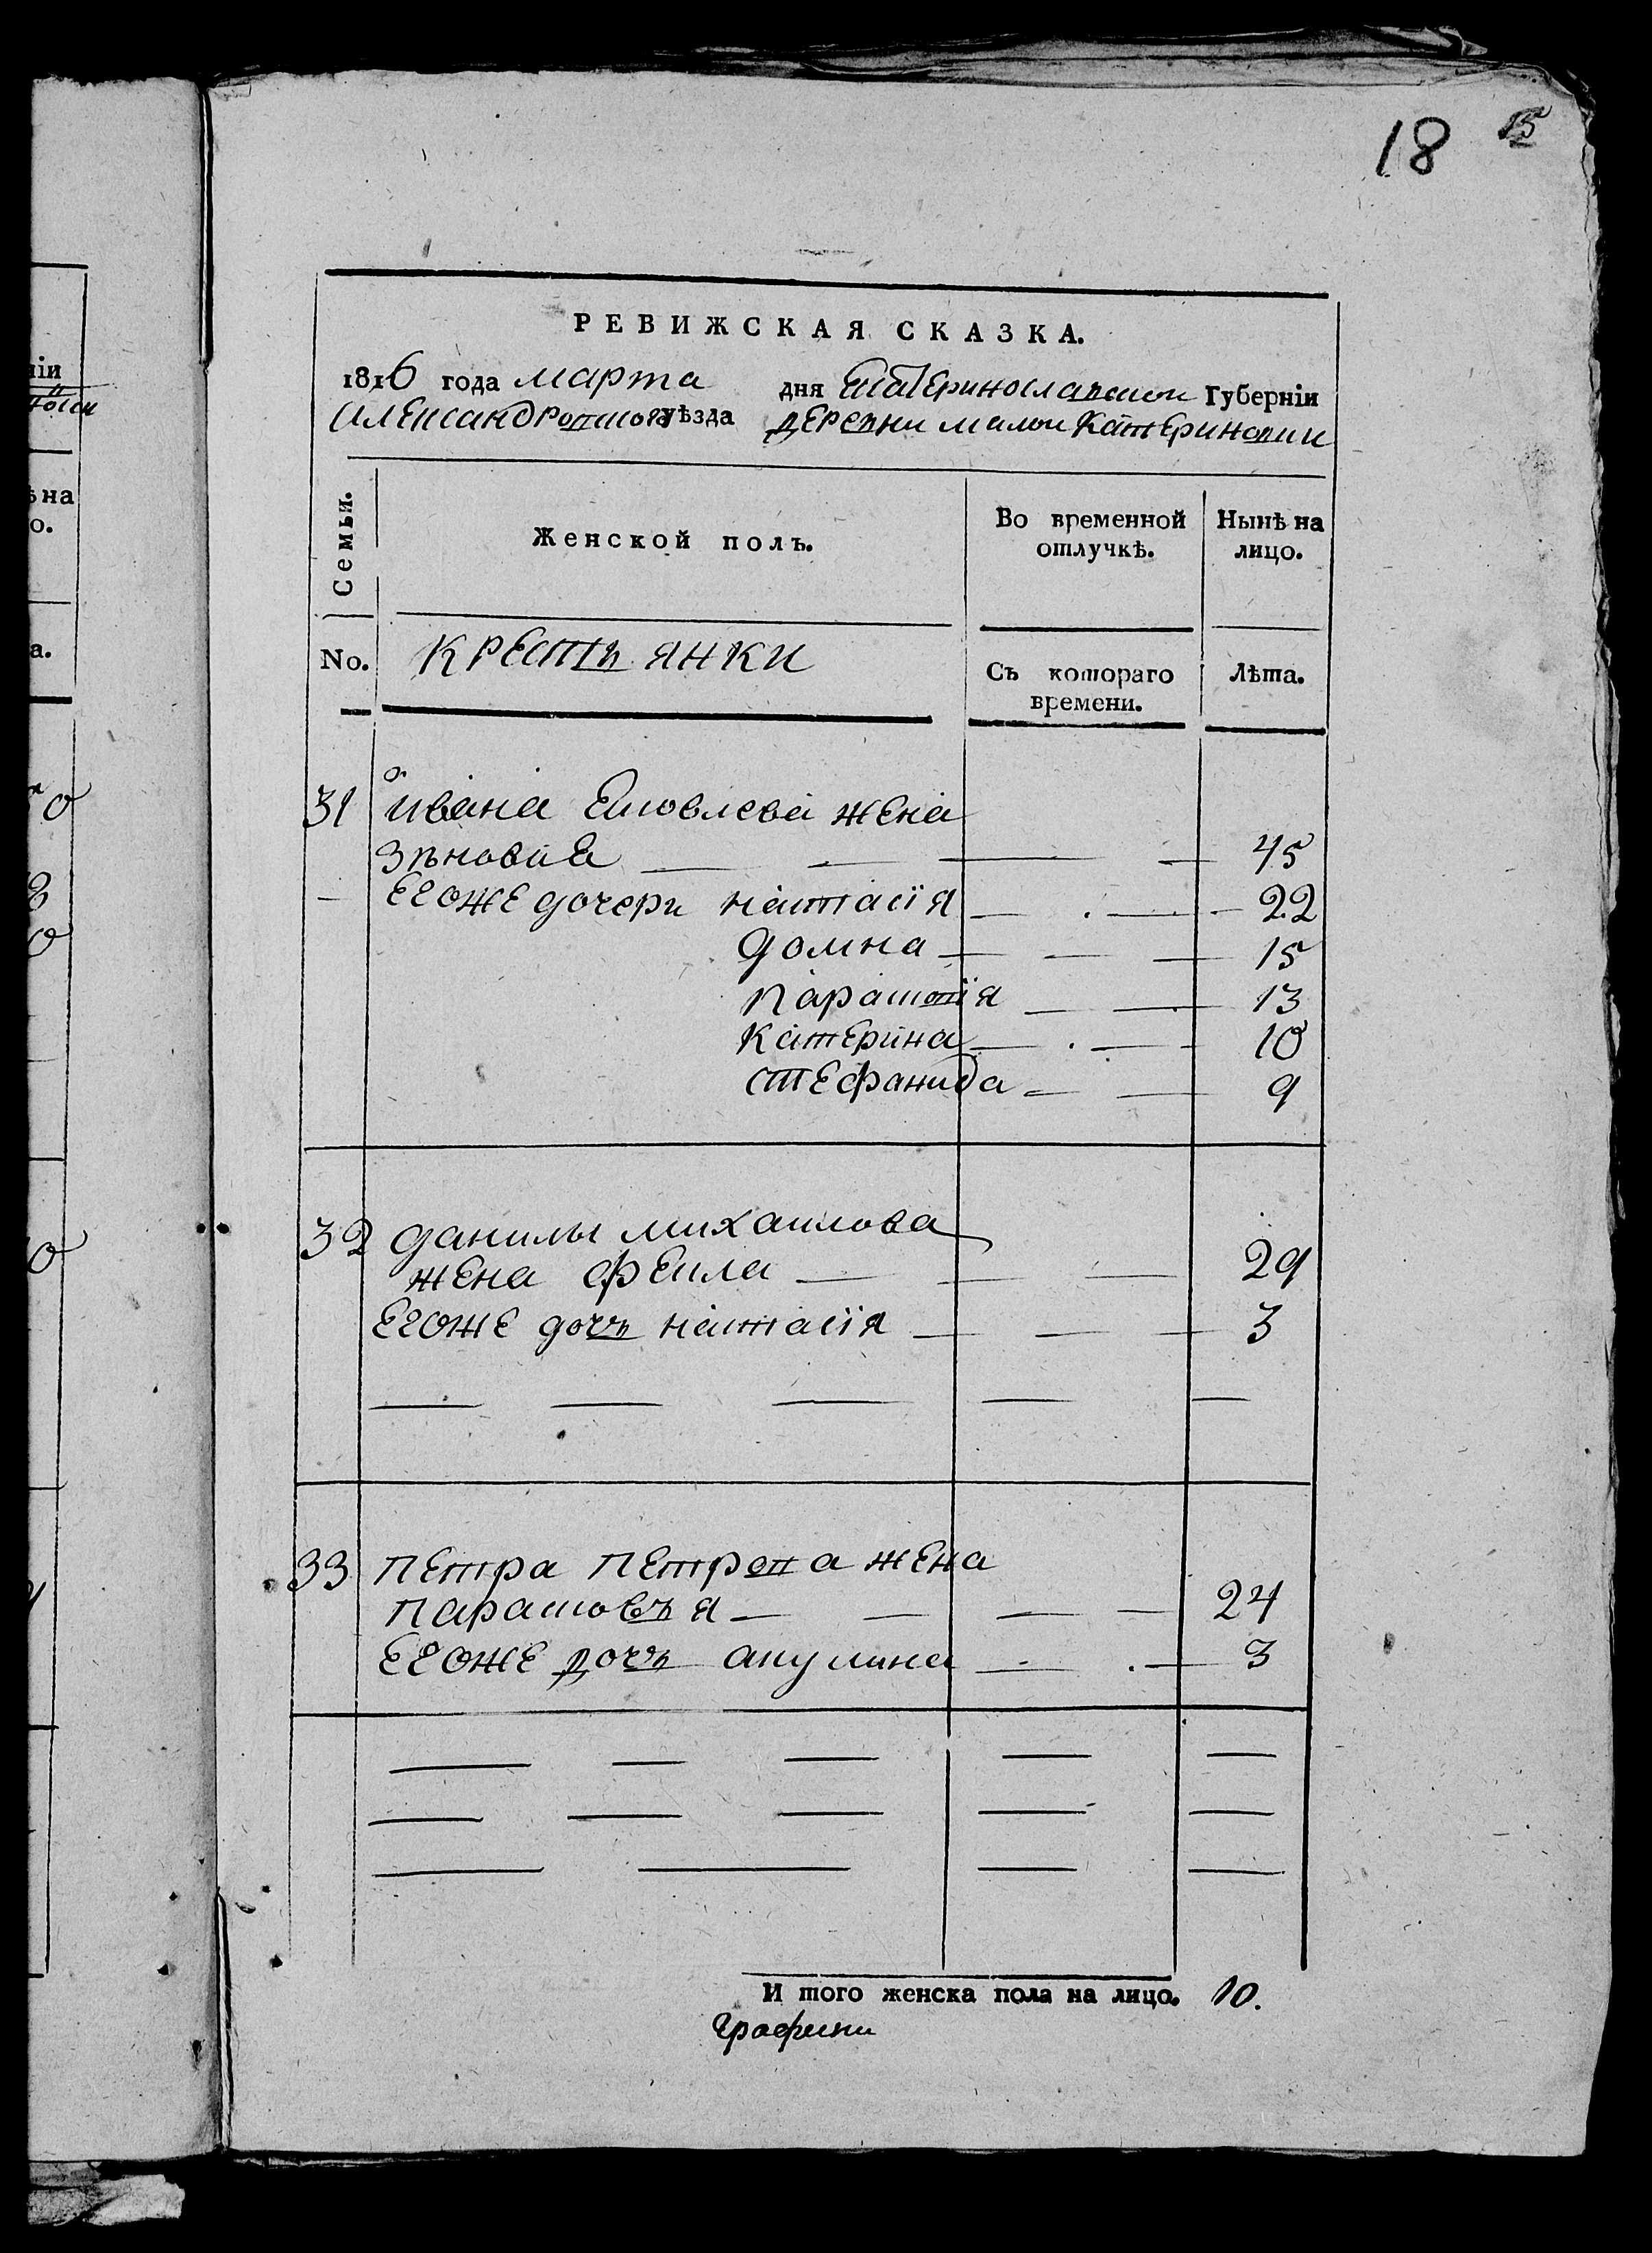 18 15
РЕВИЖСКАЯ СКАЗКА.
1816 года марта дня Екатеринославской Губерніи
Александровскога уѣзда деревни малои Катериновки
Семьи.
Женской полъ.
Во временной отлучкѣ.
Нынѣ на лицо.
No.
крестьянки
Съ котораго времени.
Лѣта.
31 ивана Яковлева жена
Зѣновия 45
егоже дочери настасія 22
домна 15
парасковія 13
катерина 10
стефанида 9
32 данилы михаилова
жена фекла 29
егоже дочь настасія 3
33 петра петрова жена
парасковья 24
егоже дочь акулина 3
И того женска пола на лицо. 10.
Графини
ніи
ѣ на
о.
а.